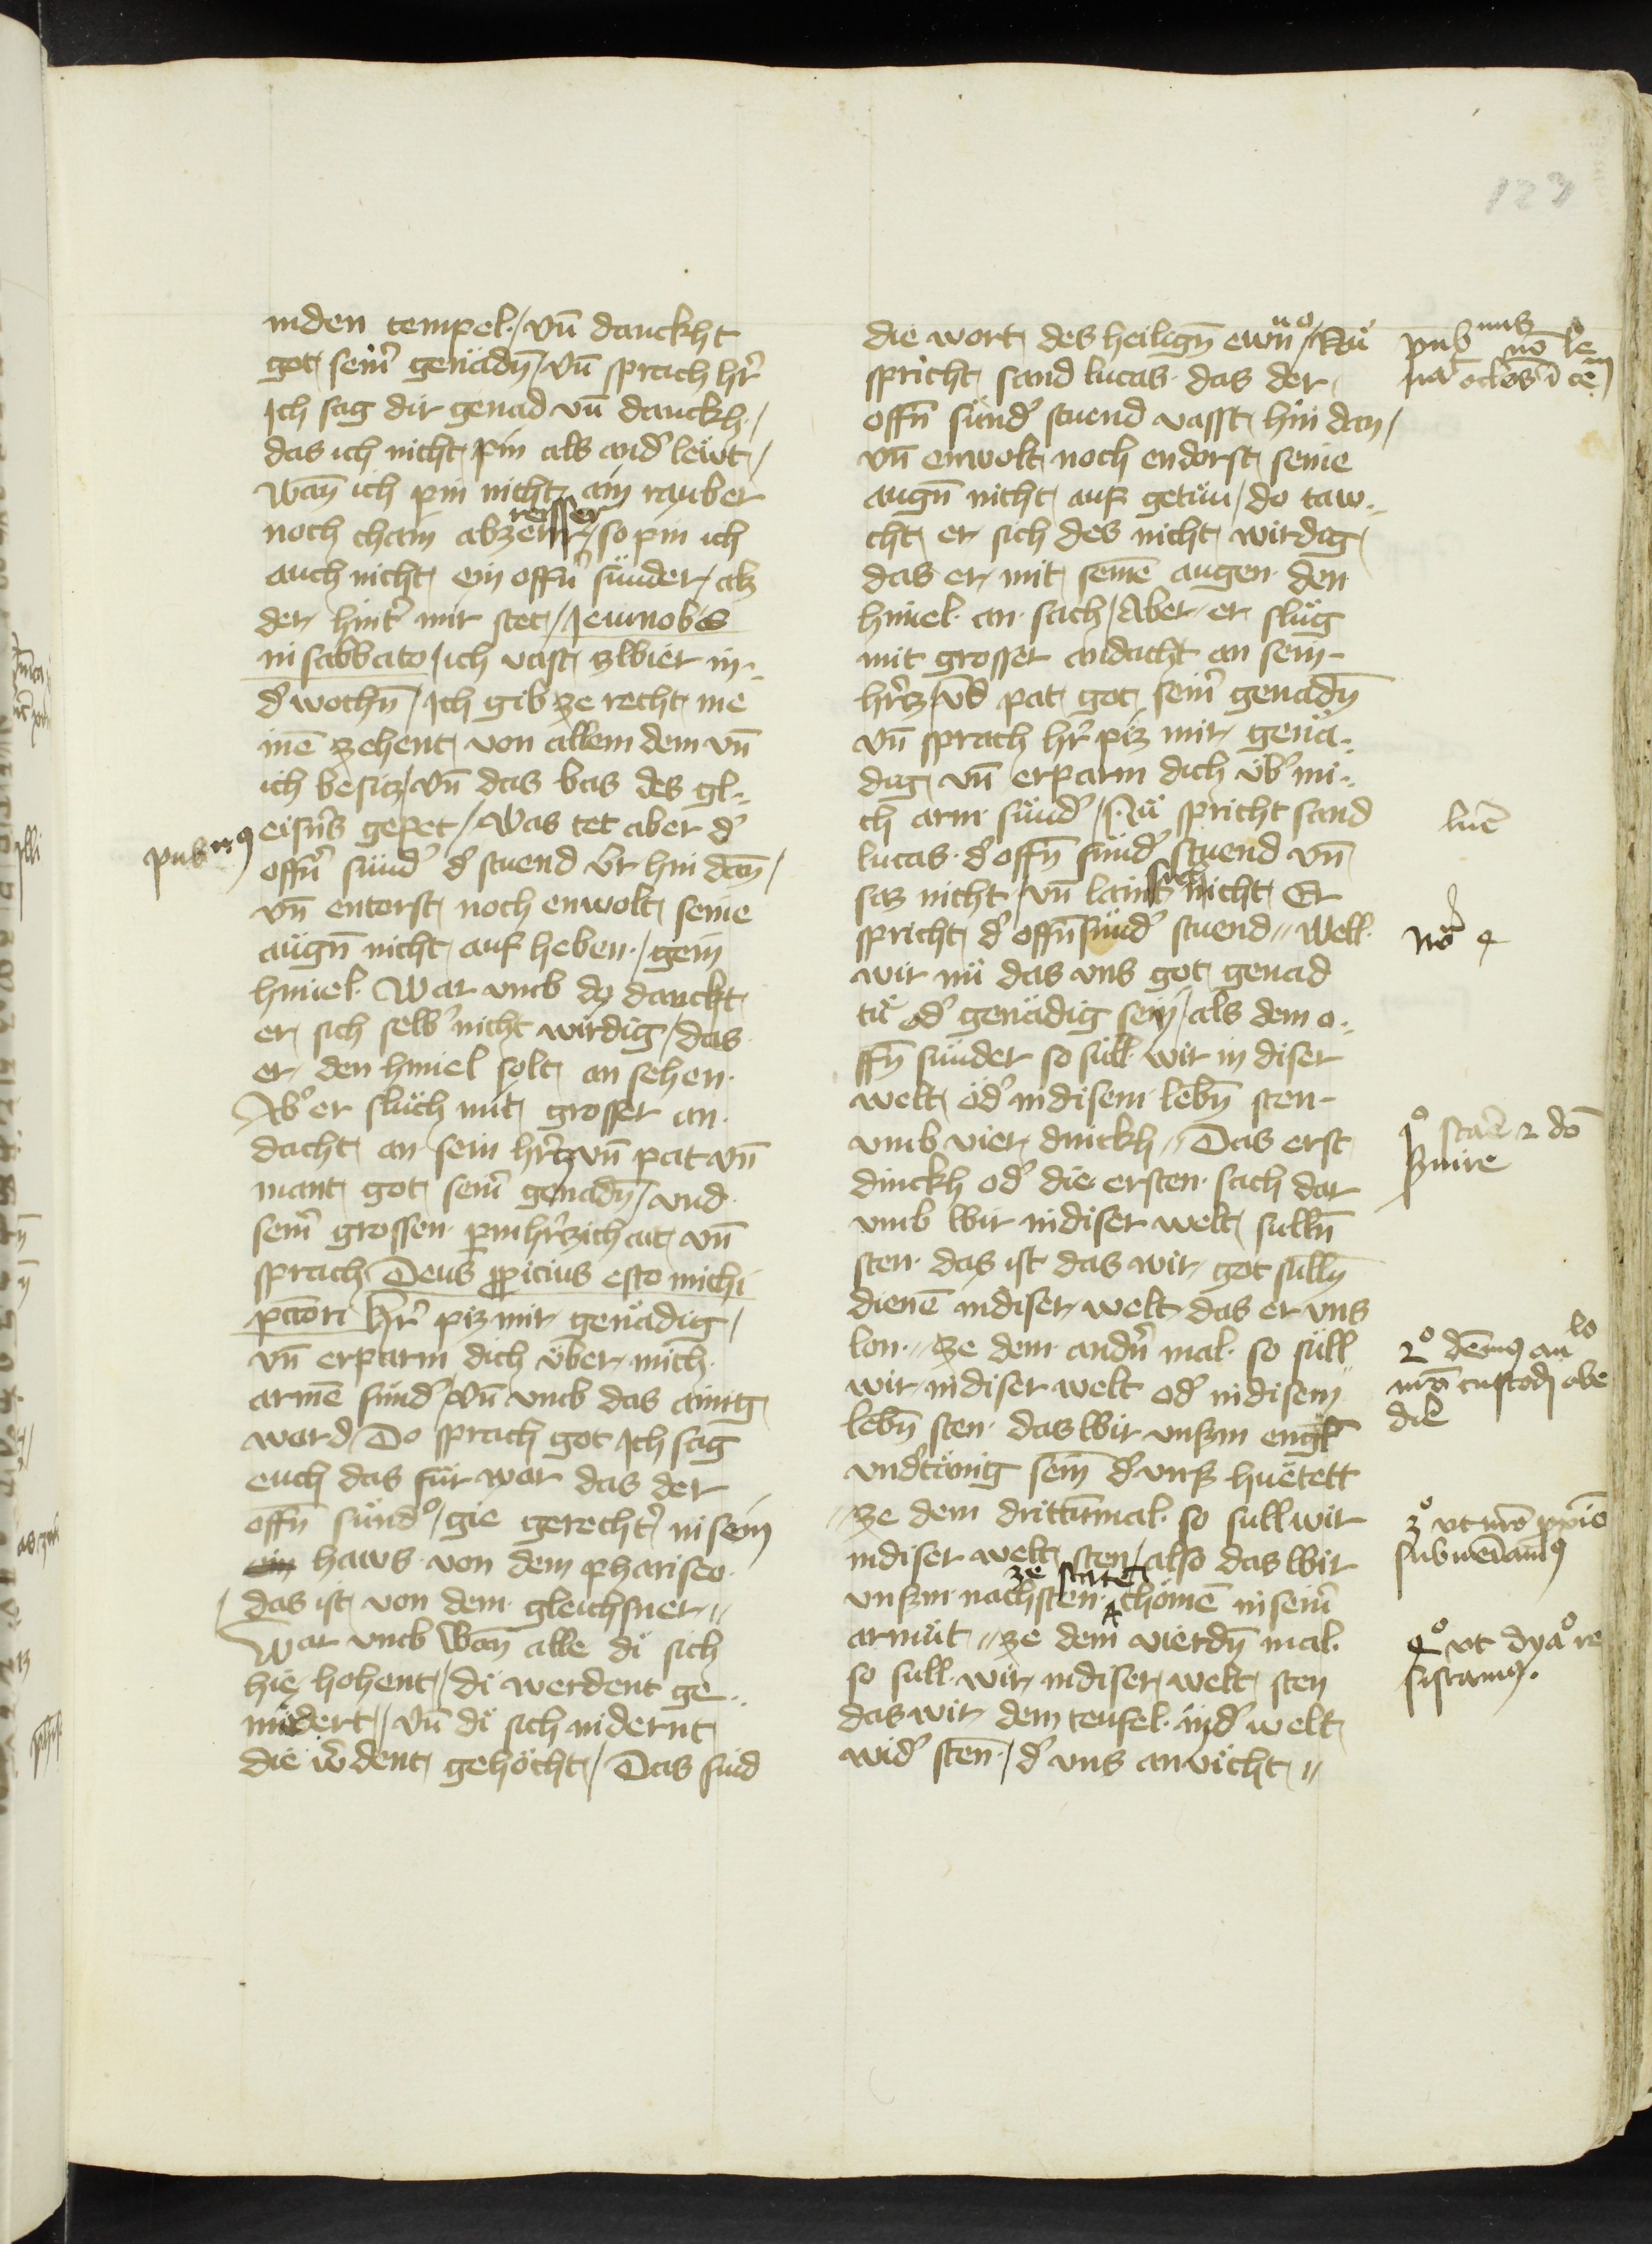 123
inden tempel / vn̄ danckht
got sein̾ genadn̄ / vn̄ sprach hr̾
Ich sag dir genad vn̄ danckh /
das ich nicht pin als and̾ lewt /
wan̄ ich pin nicht ain rauber
noch chain abzerrer / so pin ich
reisser
auch nicht ein offn̾ sünder / alz
der hint̾ mir stet / Jeiuno bis
in sabbato / ich vast zwier in
d̾ wochn̄ / Ich gib ze recht me
inē zehent von allem dem vn̄
ich besitz / vn̄ das bas des gl
eisn̾s gepet / Was tet aber d̾
offn̾ sünd̾ d̾ stuend v̾r hin dan̄ /
vn̄ entorst noch enwolt seine
augn̄ nicht auf heben / gein
himel War vmb do danckt
er sich selb̾ nicht wirdig / das
er den himel solt an sehen
Ab̾ er sluch mit grosser an
dacht an sein hr̾cz vn̄ pat vn̄
mant got sein̾ genadn̄ / vnd
sein̾ grossen pmhr̾zichait vn̄
sprach Deus ꝓpicius esto michi
pctori hr̾ piz mir genädig /
vn̄ erparm dich über mich
armē sünd̾ / Vn̄ vmb das ainig
word / Do sprach got Ich sag
euch das für war das der
offn̄ sünd̾ / gie gerecht̾ in sein
haws von dem phariseo
das ist von dem gleichsner //
War vmb Wan̄ alle di sich
hie hohent / di werdent ge
nidert // Vn̄ di sich nidernt
die w̾dent gehöcht / Das sind
pub nꝰ
die wort des heilign̄ ewn̄ / Nu
spricht sand lucas das der
offn̄ sünd̾ stuend vasst hin dan /
vn̄ enwolt noch endorst seine
augn̄ nicht auf getün / do taw
cht er sich des nicht wirdig
das er mit seinē augen den
himel an sach / Aber er slug
mit grosser andacht an sein
hr̾cz / vn̄d pat got sein̾ genadn̄
vn̄ sprach hr̾ piz mir genä
dig vn̄ erparm dich üb̾ mi
ch arm sünd̾ / Nu spricht sand
lucas d̾ offn̄ sünd̾ stuend vn̄
saz nicht / vn̄ laint sich nicht Er
spricht d̾ offn̄ sünd̾ stuend // Well
wir nu das vns got genad
tü od̾ genädig sein / als dem o
ffn̄ sünder so süll wir in diser
welt od̾ in disem lebn̄ sten
vmb vier dinckh // Das erst
dinckh od̾ die ersten sach dar
vmb wir in diser welt sulln̄
sten das ist das wir got sulln̄
dienē in diser welt das er vns
lon // ze dem andn̾ mal so süll
wir in diser welt od̾ in disem
lebn̄ sten das wir vnsm engl
vnd̾tänig sein̄ d̾ vns huetett
// ze dem drittn̄mal so sull wir
in diser welt sten / also das wir
vnsm nachsten ze staten chömē in sein̾
armüt // ze dem vierdn̄ mal
so sull wir in diser welt sten
das wir dem teufel in d̾ welt
wid̾ sten / d̾ vns anvicht //
luc̄
nō 4
1º stare 2 dō
s̾uire
2º
custod obe
die
3º
subueniamꝰ
4º vt dyaº re
sistamꝰ